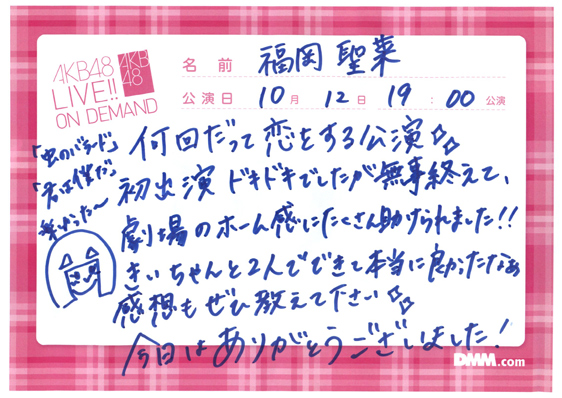 AKB48
LIVE!!
ON DEMAND
AKB
48
名前 福岡 聖菜
公演日 10月 12日 19:00公演
「虫のバラード」
「君は僕だ」
楽しかった〜
何回だって恋をする公演
初出演 ドキドキでしたが無事終えて、
劇場のホーム感にたくさん助けられました!!
さいちゃんと2人でできて本当に良かったなぁ
感想もぜひ教えて下さい
今日はありがとうございました!
DMM.com